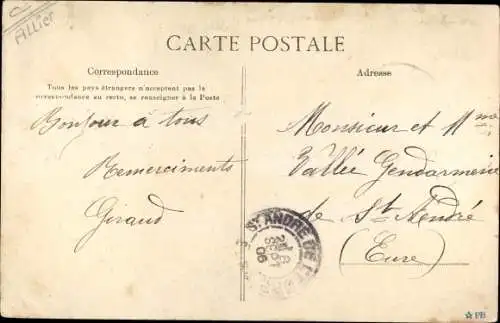 Allier
CARTE POSTALE
Correspondance
Tous les pays étrangers n'acceptent pas la
correspondance au recto, se renseigner à la Poste
Bonjour à tous
Remerciments
Giraud
Adresse
Monsieur et Mme
Vallée Gendarmerie
de St André
(Eure)
ST ANDRE DE L'EURE
06
PB